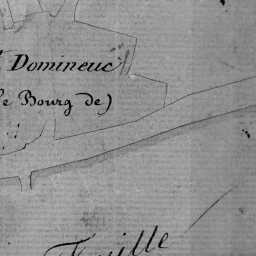 Domineuc
le Bourg de)
Feuille